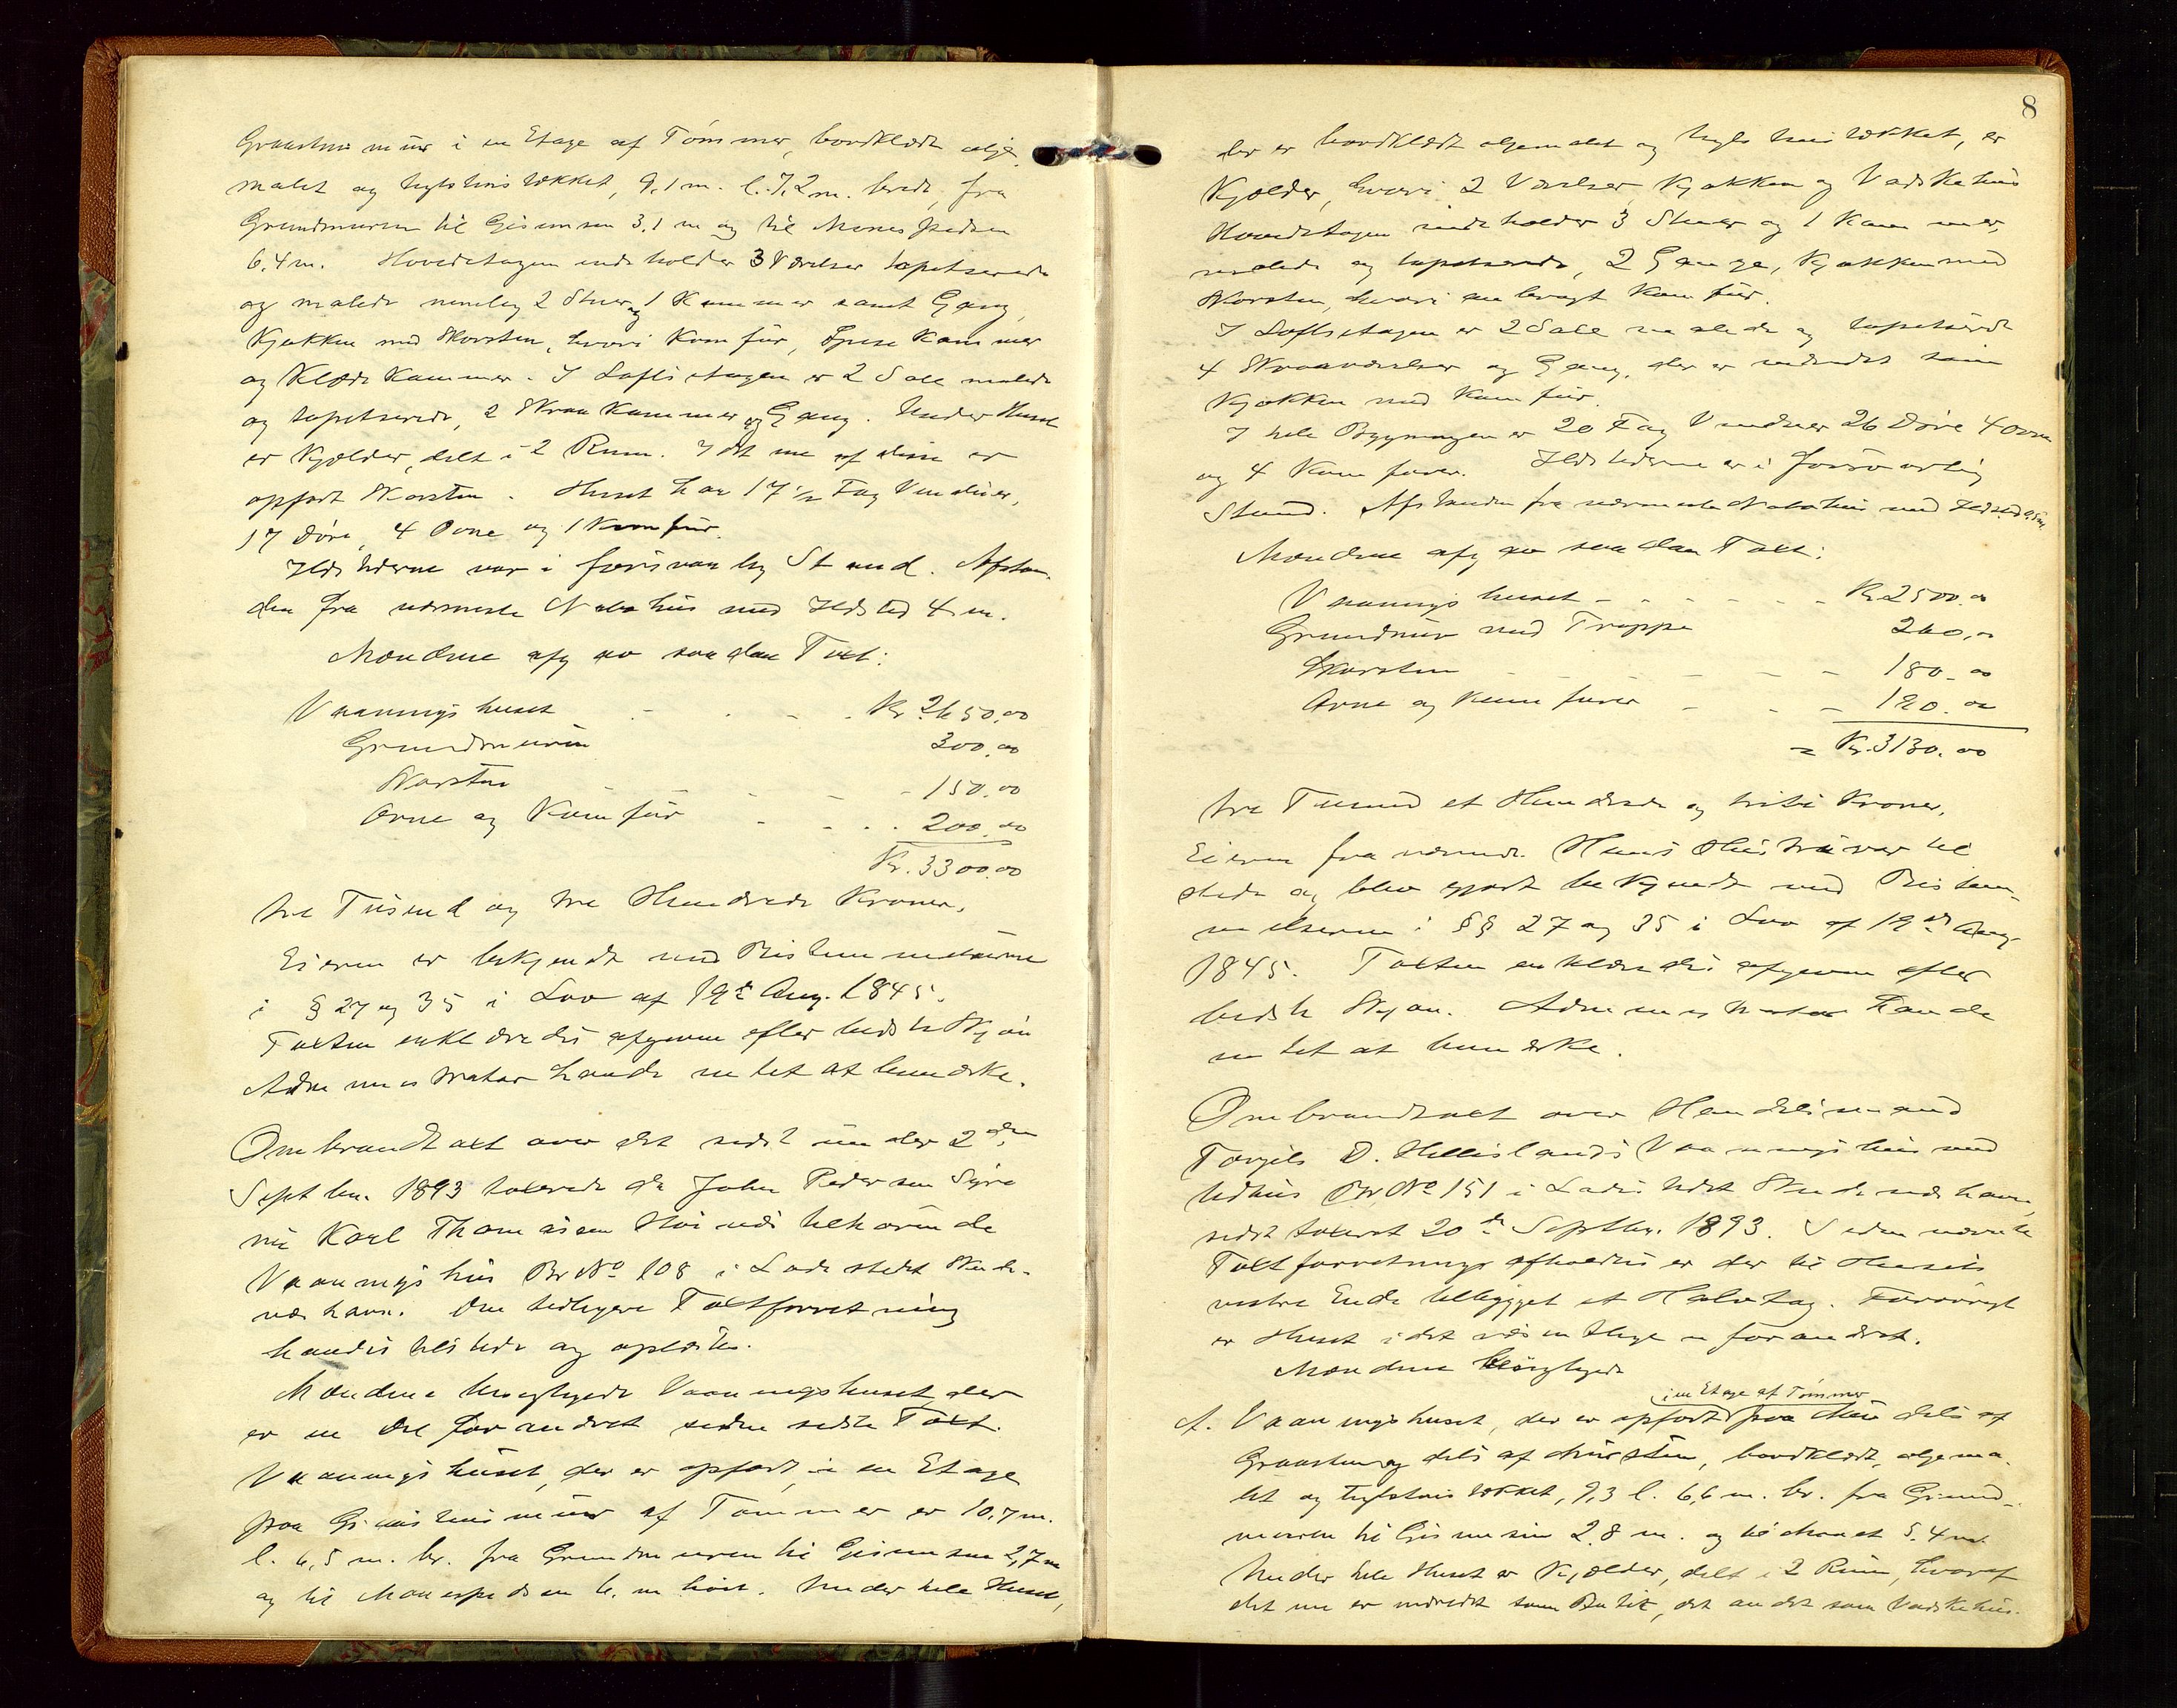 Graastensmur i en Etage af Tömmer, bordklædt olje
malet og teglstenstækket, 9.1 m. l. 7,2 m. bredt, fra
Grundmuren til Gesimsen 3,1 m og til Mønespidsen
6,4 m. Hovedetagen indeholder 3 Værelser tapetserede
og malede nemlig 2 Stuer og 1 Kammer samt Gang,
Kjøkken med Skorsten, hvori Komfür, Spisekammer
og Klædekammer. I Loftsetagen er 2 Sale malede
og tapetserede, 2 Skraakammer og Gang. Under Huset
er Kjælder, delt i 2 Rum. I det ene af disse er
opført Skorsten. Huset har 17 1/2 Fag Vinduer,
17 Döre, 4 Ovne og 1 Komfür.
Ildstederne var i forsvarlig Stand. Afstan-
den fra nærmeste Nabohus med Ildsted 4 m.
Mændene afgav saadan Taxt:
Vaaningshuset - - - Kr 2650.00
Grundmuren 300.00
Skorsten - - - 150.00
Ovne og Komfür - - - 200.00
Kr. 3300.00
tre Tusind og tre Hundrede Kroner.
Eieren er bekjendt med Bestemmelserne
i § 27 og 35 i Lov af 19de Aug. 1845.
Taxten erklæredes afgiven efter bedste Skjön
Administrator havde intet at bemærke.
Ombrandtaxt over det sidst under 2den
Septbr. 1893 taxerede da John Pedersen Syre
nu Karl Thomassen tilhörende
Vaaningshus Br No 108 i Ladestedet Skude-
neshavn. Den tidligere Taxtforretning
havdes tilstede og oplæstes.
Mændene besigtigede Vaaningshuset, der
er en Del forandret siden sidste Taxt.
Vaaningshuset, der er opført i en Etage
paa Graastensmur af Tømmer er 10,7 m.
l. 6,5 m. br. fra Grundmuren til Gesimsen 2,7 m
og til Mønespidsen 6. m höit. Under hele Huset,
8
der er bordklædt oljemalet og teglstenstækket, er
Kjælder, hvori 2 Værelser, Kjøkken og Vadskehus
Hovedetagen indeholder 3 Stuer og 1 Kammer,
malede og tapetserede, 2 Gange, Kjøkken med
Skorsten, hvori anbragt Komfür.
I Loftsetagen er 2 Sale malede og tapetserede
4 Skraaværelser og Gang, der er indredet som
Kjøkken med Komfür.
I hele Bygningen er 20 Fag Vinduer 26 Döre 4 Ovne
og 4 Komfurer. Ildstederne er i forsvarlig
Stand. Afstanden fra nærmeste Nabohus med Ildsted
Mændene afgav saadan Taxt:
Vaaningshuset - - - - - Kr 2500.00
Grundmur med Trappe 260.00
Skorsten - - - - - 180.00
Ovne og Komfurer - - - 190.00
= Kr. 3130.00
tre Tusind et Hundrede og treti Kroner.
Eieren fraværende. Hans Hustru var til
stede og blev gjort bekjendt med Bestem-
melserne i §§ 27 og 35 i Lov af 19de Aug
1845. Taxten erklæredes afgiven efter
bedste Skjøn. Administrator havde
intet at bemærke.
Ombrandtaxt over Handelsmand
Torgils D. Hellislands Vaaningshus med
Udhus Br No 151 i Ladestedet Skudeneshavn,
sidst taxeret 20de Septbr. 1893. Siden nævnte
Taxtforretnings afholdelse er der til Husets
vestre Ende tilbygget et Halvtag. Forøvrigt
er Huset i det væsentlige uforandret.
Mændene besigtigede
i en Etage af Tömmer
A. Vaaningshuset, der er opført paa Mur dels af
Graasten og dels af Mursten, bordklædt, oljema-
let og teglstenstækket, 9,3 l. 6,6 m. br. fra Grund-
muren til Gesimsen 2,8 m. og til Mønet 5.4 m.
Under hele Huset er Kjælder, delt i 2 Rum, hvoraf
det ene er indredet som Butik, det andet som Vadskehus.